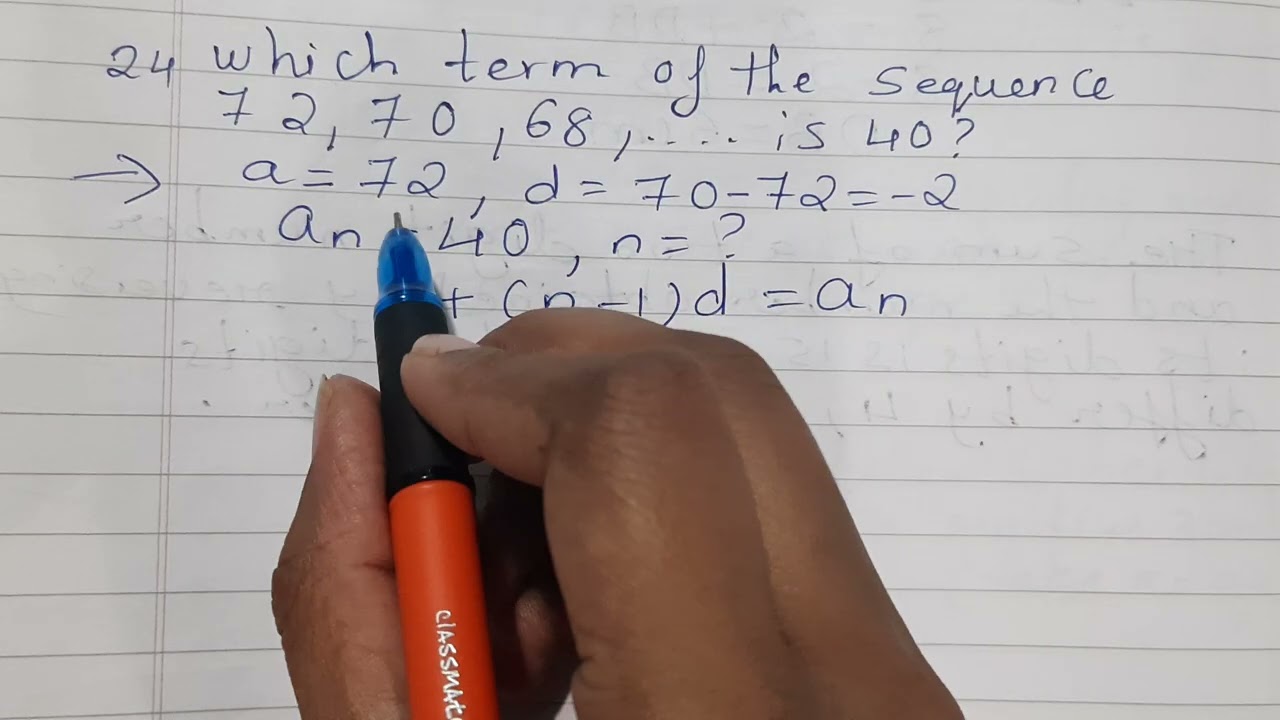 24 which term of the sequence
72, 70, 68, .... is 40?
→ a = 72, d = 70-72 = -2
an 40, n = ?
+ (n-1)d = an
CLASSMATE